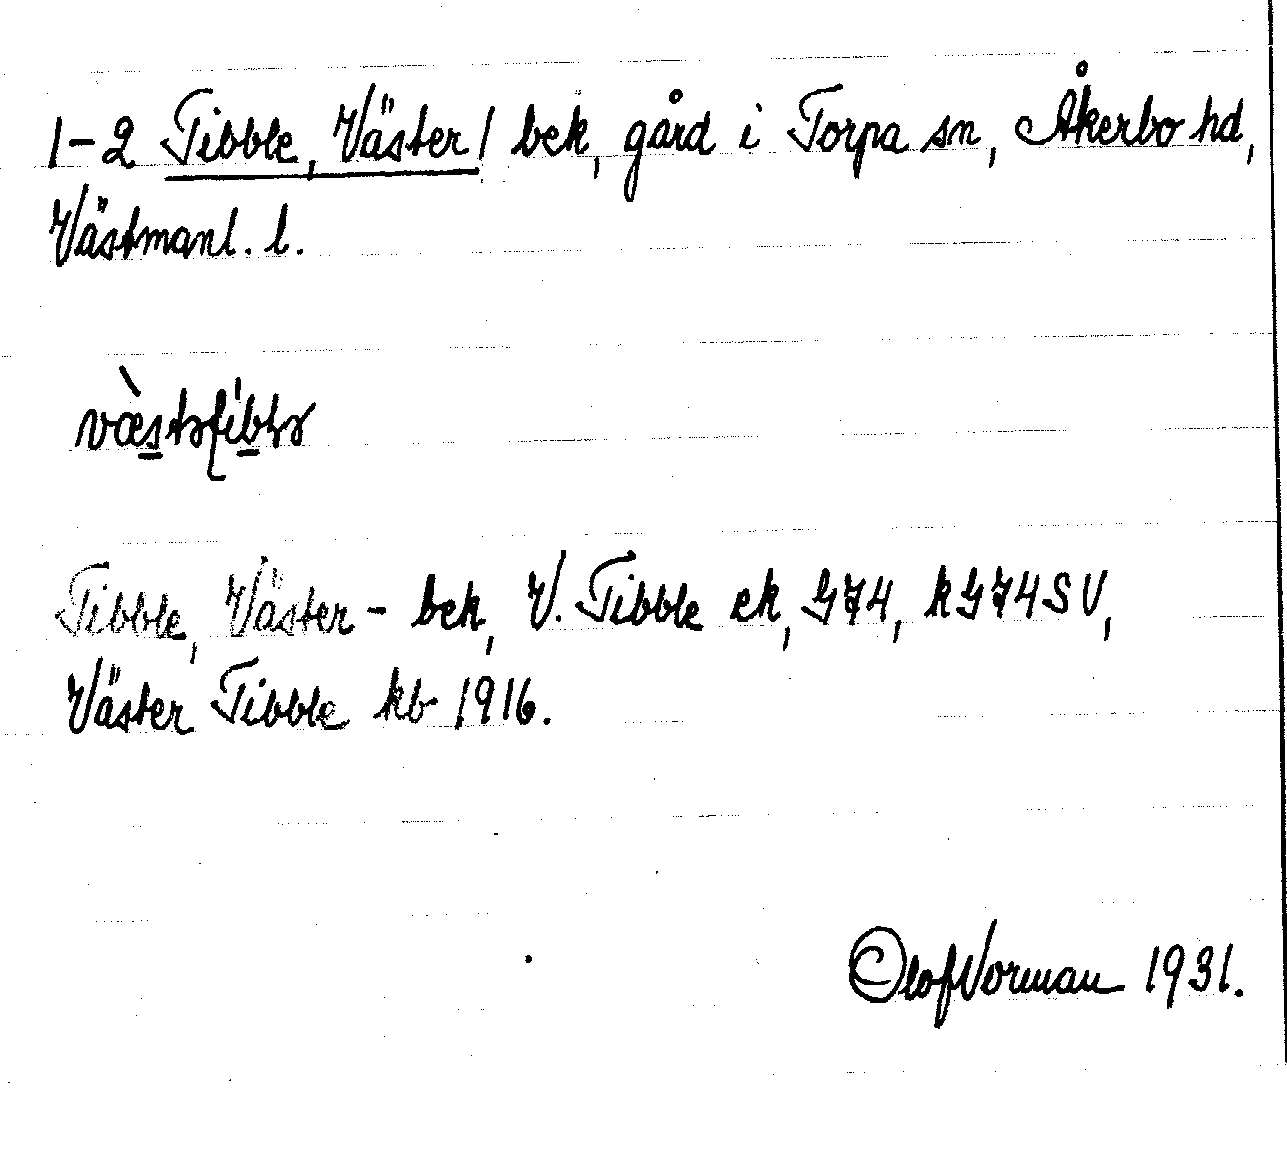 1-2 Tibble, Väster / bek, gård i Torpa sn, Åkerbo hd,
Västmanl. l.
Tibble, Väster - bek, V. Tibble ek, G74, kG74SV,
Väster Tibble kb 1916.
Olof Norman 1931.